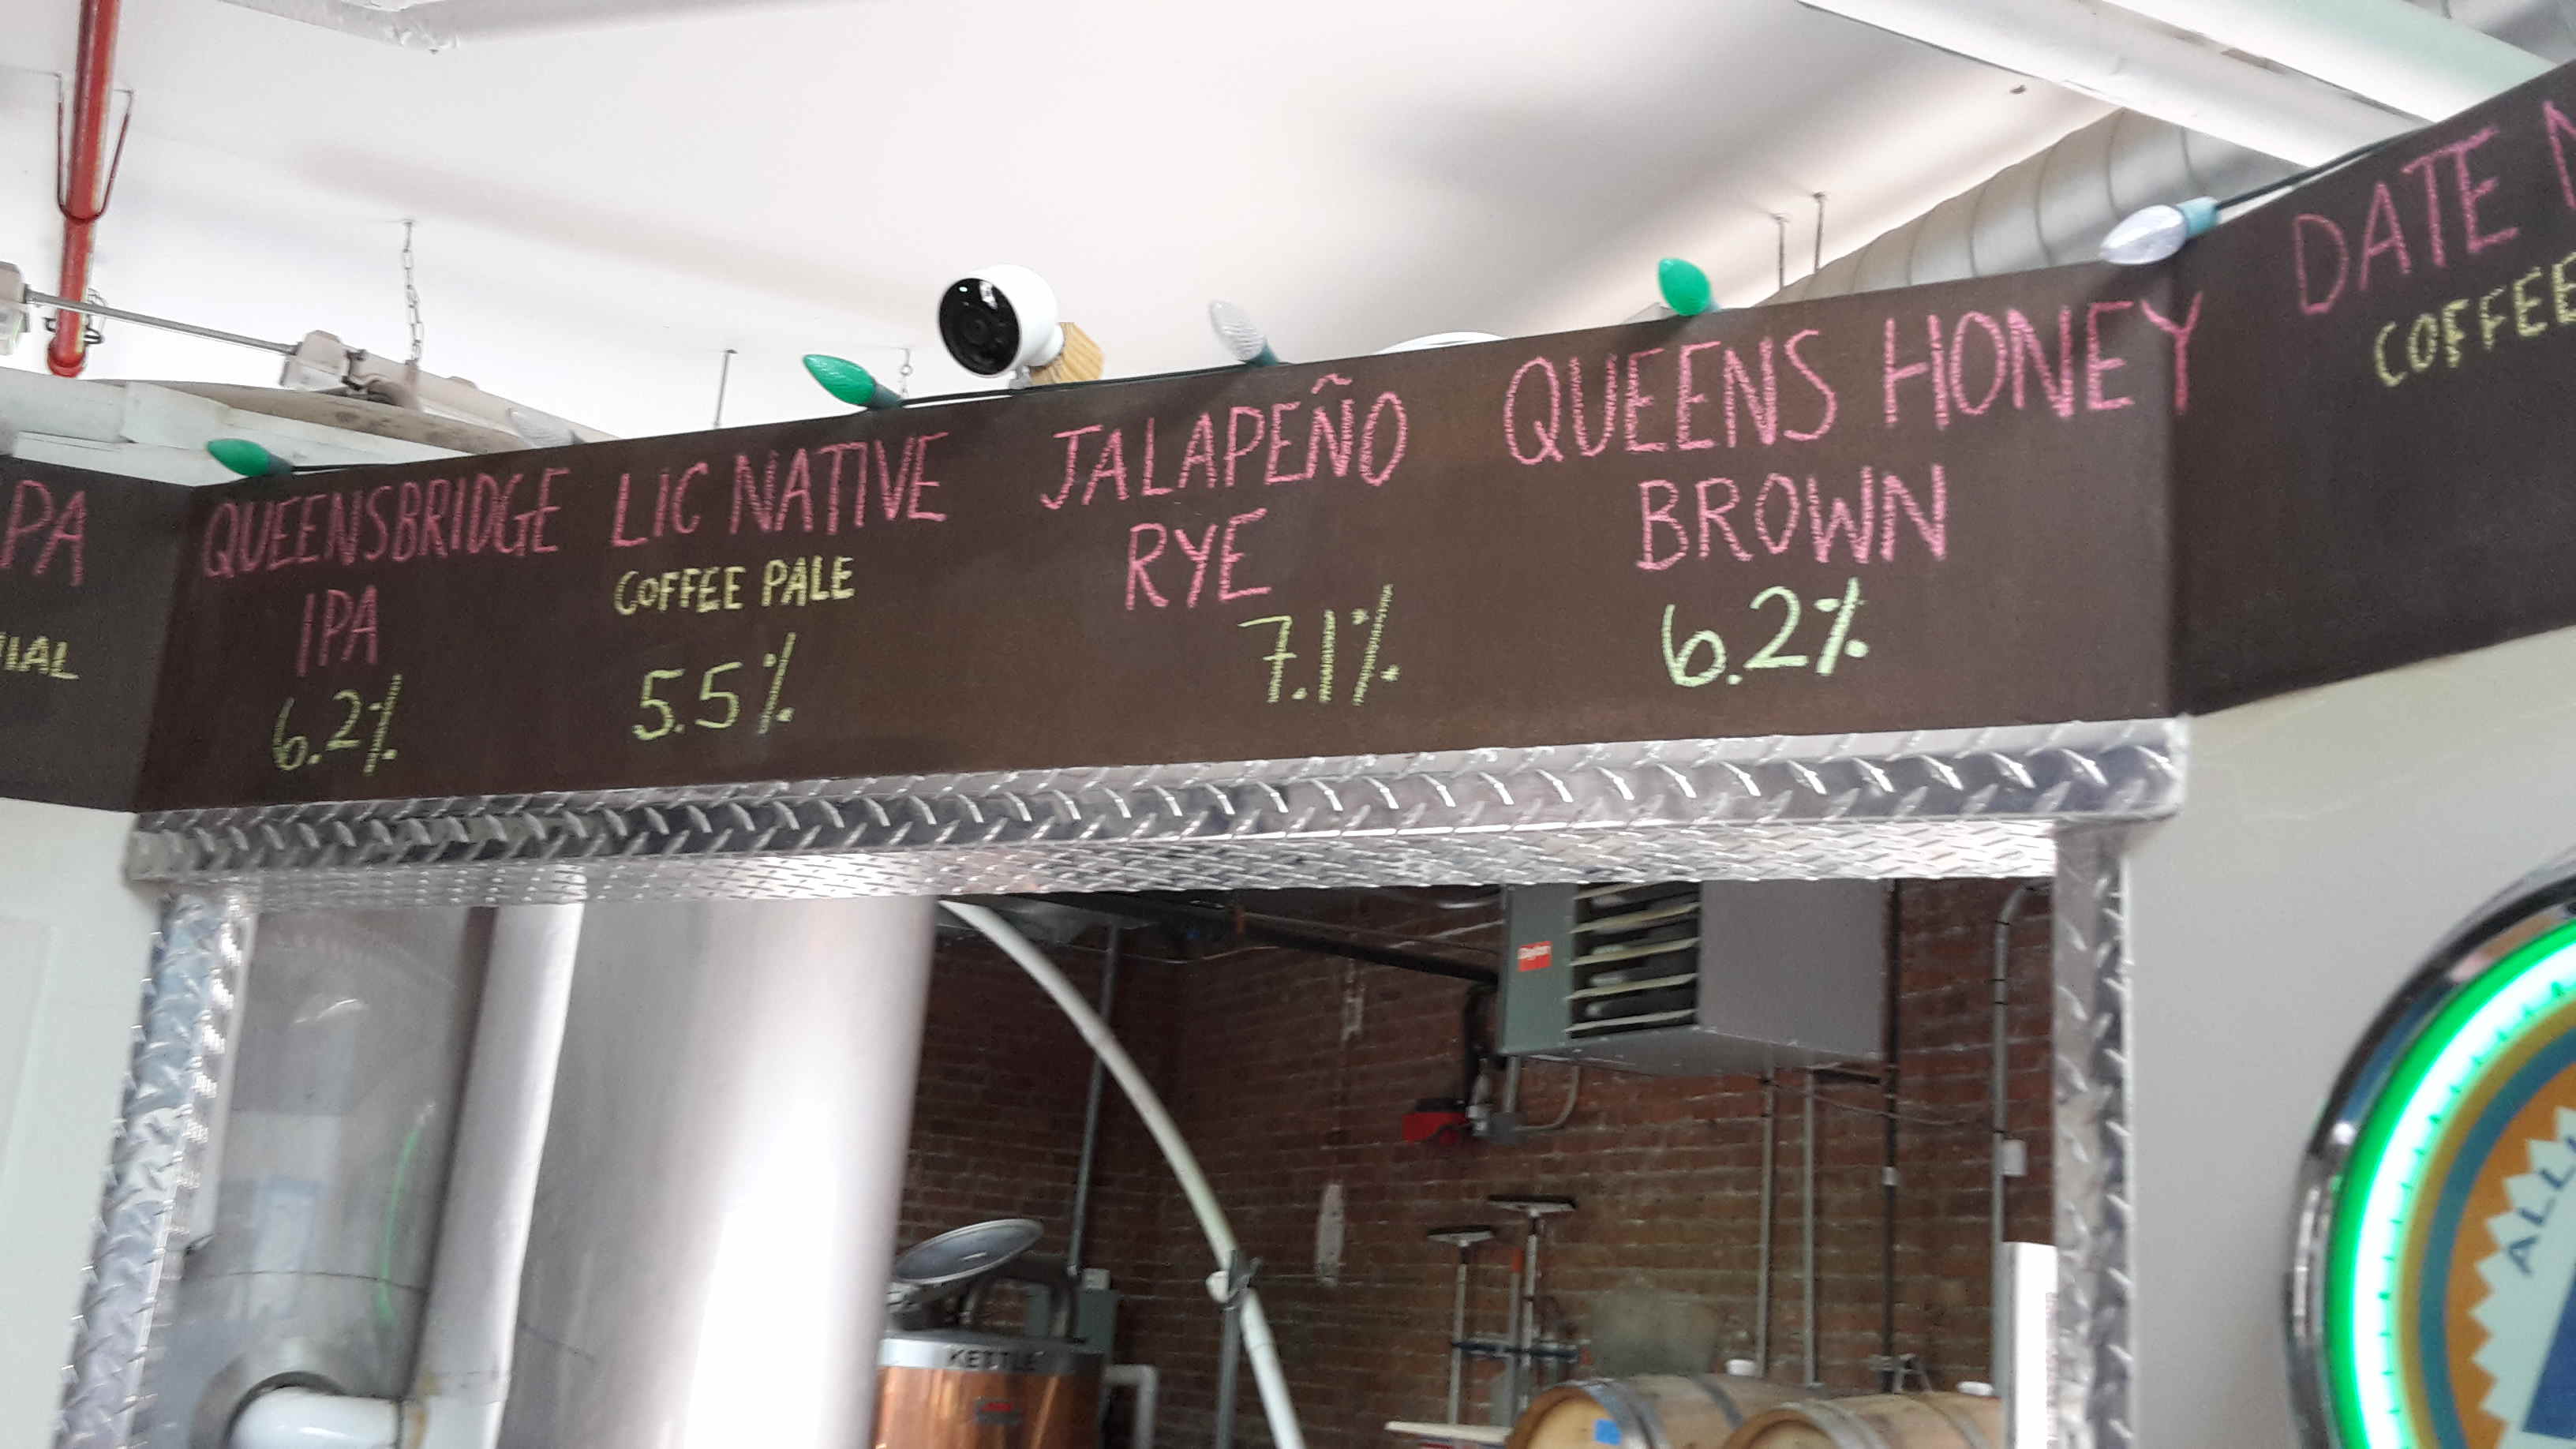 PA
QUEENSBRIDGE
IPA
6.2%
LIC NATIVE
COFFEE PALE
5.5%
JALAPEÑO
RYE
7.1%
QUEENS HONEY
BROWN
6.2%
DATE
COFFEE
KETTLE